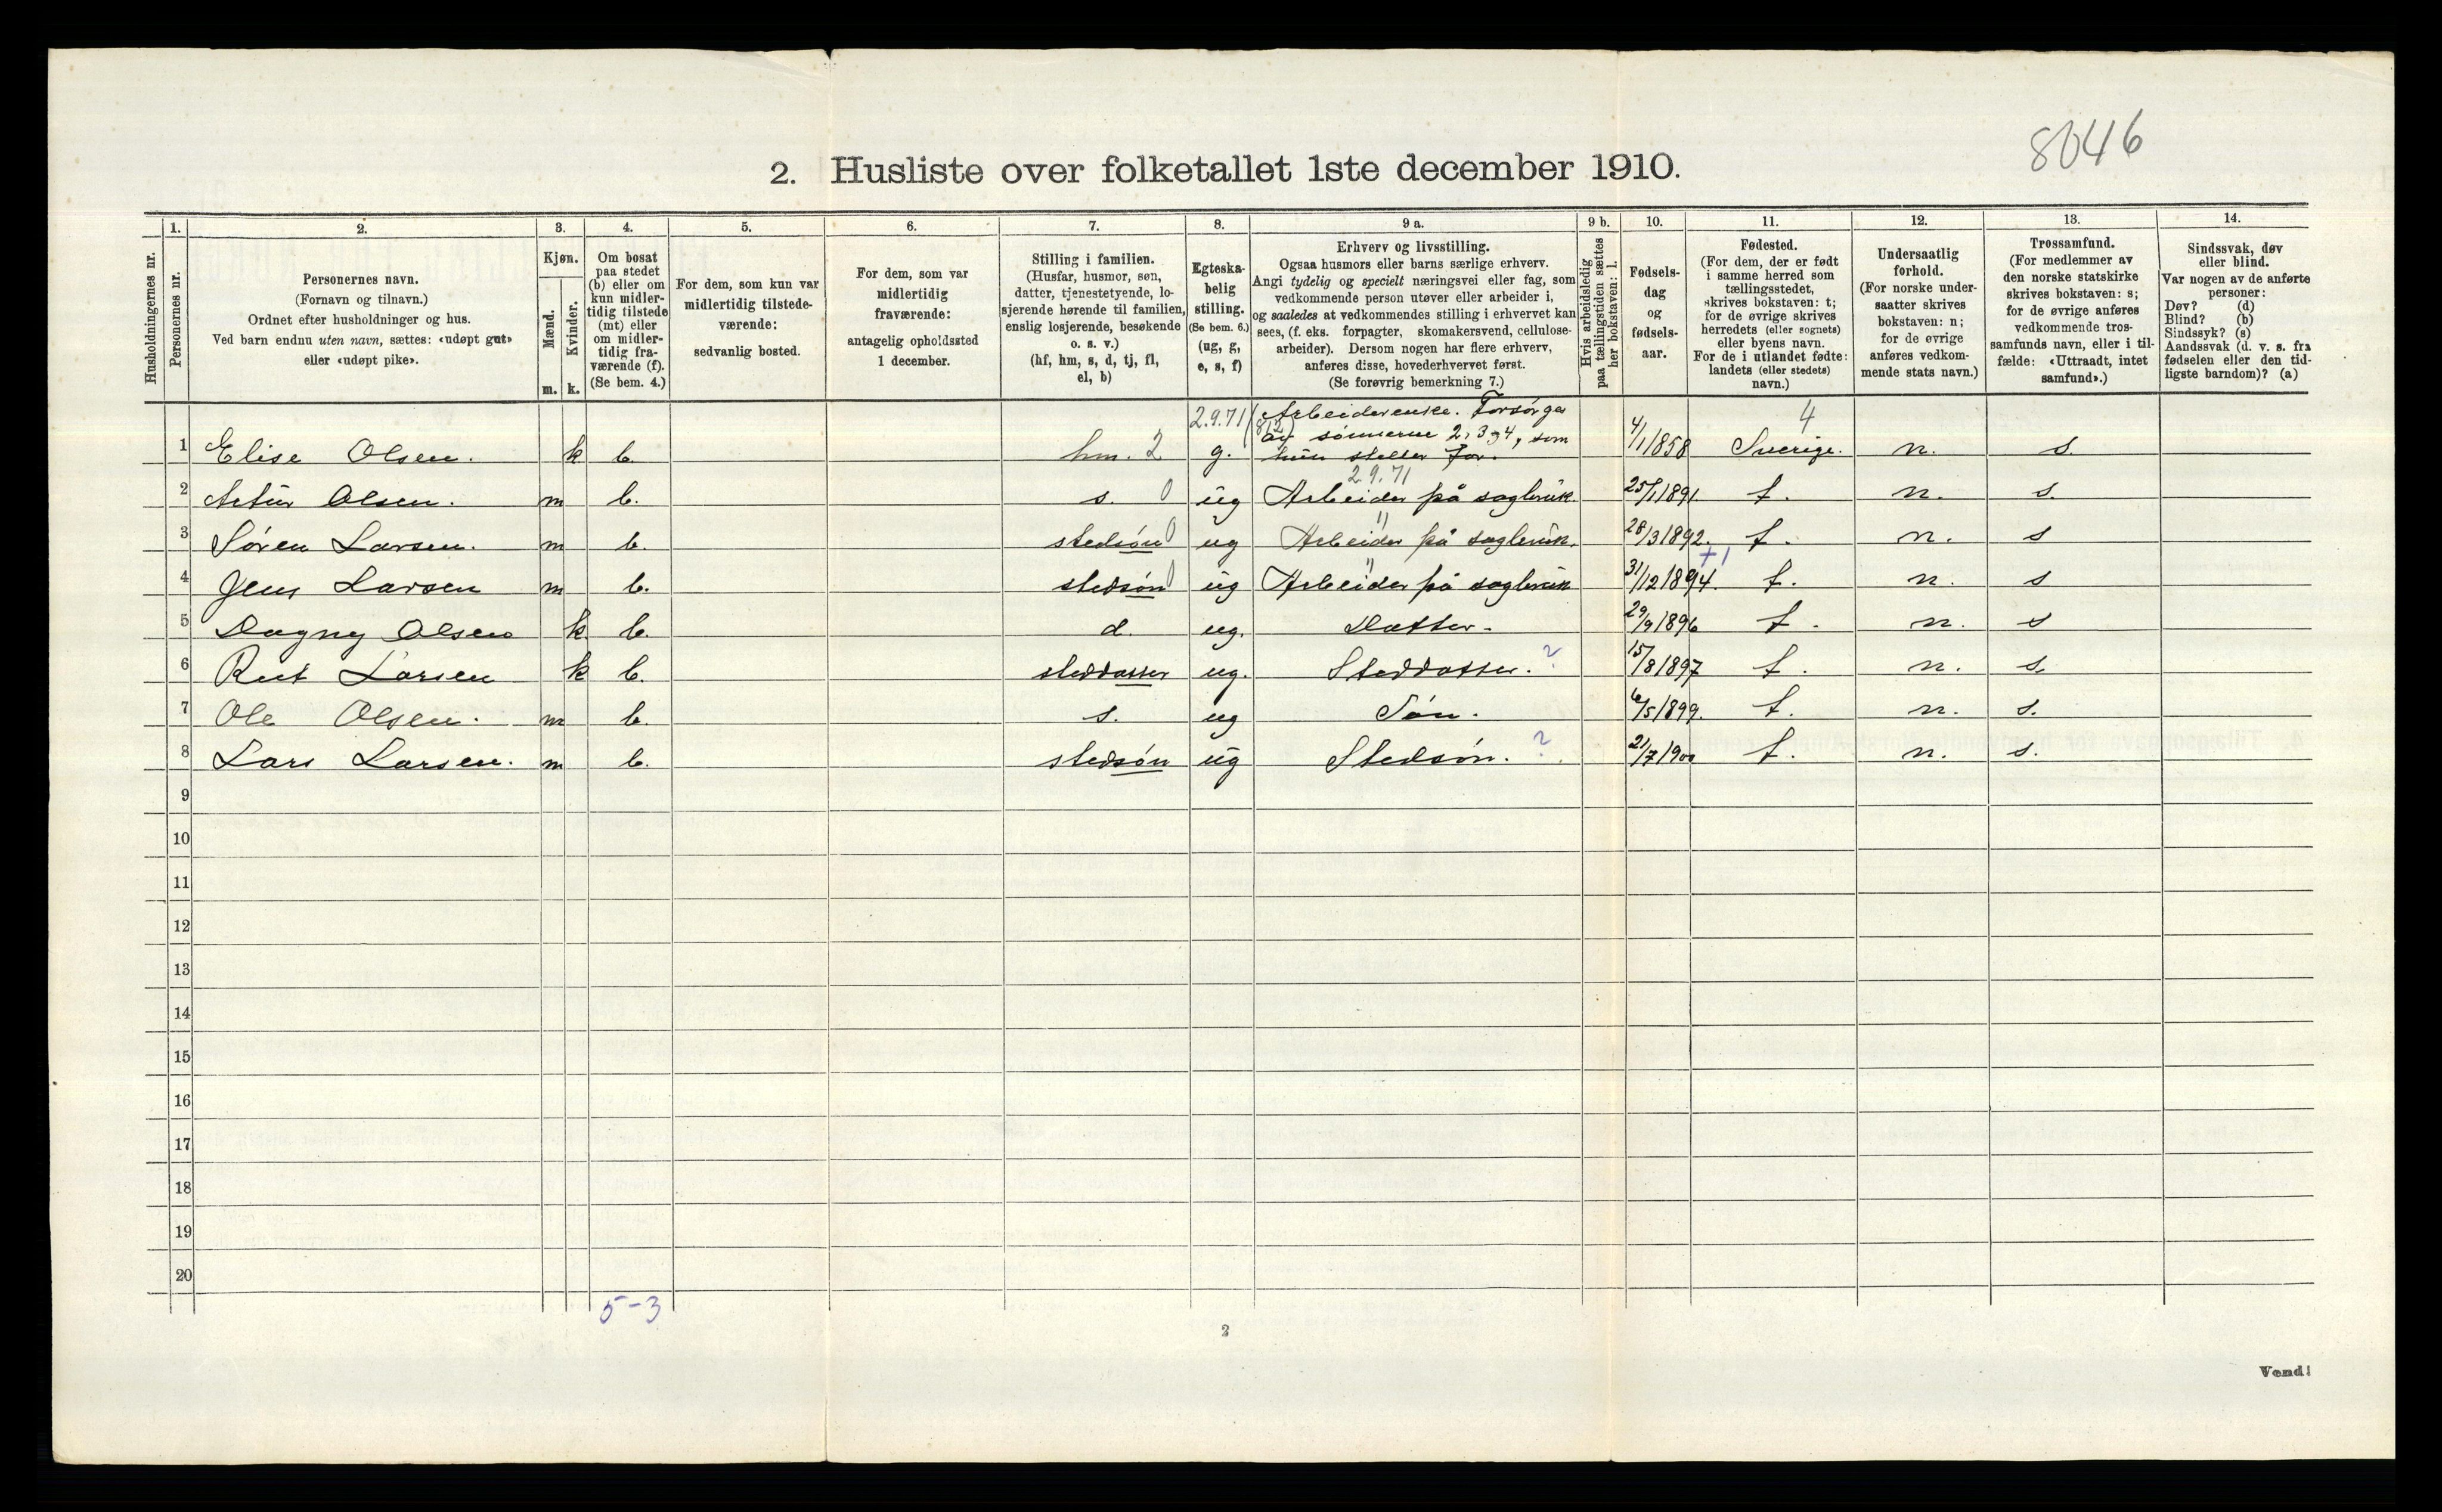 8046
2. Husliste over folketallet 1ste december 1910.
Husholdningernes nr.
1.
Personernes nr.
2.
Personernes navn.
(Fornavn og tilnavn.)
Ordnet efter husholdninger og hus.
Ved barn endnu uten navn, sættes: «udøpt gut»
eller «udøpt pike».
3.
Kjøn.
Mænd.
Kvinder.
m. k.
4.
Om bosat
paa stedet
(b) eller om
kun midler-
tidig tilstede
(mt) eller
om midler-
tidig fra-
værende (f).
(Se bem. 4.)
5.
For dem, som kun var
midlertidig tilstede-
værende:
sedvanlig bosted.
6.
For dem, som var
midlertidig
fraværende:
antagelig opholdssted
1 december.
7.
Stilling i familien.
(Husfar, husmor, søn,
datter, tjenestetyende, lo-
sjerende hørende til familien,
enslig losjerende, besøkende
o. s. v.)
(hf, hm, s, d, tj, fl,
el, b)
8.
Egteska-
belig
stilling.
(Se bem. 6.)
(ug, g,
e, s, f)
9 a.
Erhverv og livsstilling.
Ogsaa husmors eller barns særlige erhverv.
Angi tydelig og specielt næringsvei eller fag, som
vedkommende person utøver eller arbeider i,
og saaledes at vedkommendes stilling i erhvervet kan
sees, (f. eks. forpagter, skomakersvend, cellulose-
arbeider). Dersom nogen har flere erhverv,
anføres disse, hovederhvervet først.
(Se forøvrig bemerkning 7.)
9 b.
Hvis arbeidsledig
paa tællingstiden sættes
her bokstaven: l.
10.
Fødsels-
dag
og
fødsels-
aar.
11.
Fødested.
(For dem, der er født
i samme herred som
tællingsstedet,
skrives bokstaven: t;
for de øvrige skrives
herredets (eller sognets)
eller byens navn.
For de i utlandet fødte:
landets (eller stedets)
navn.)
12.
Undersaatlig
forhold.
(For norske under-
saatter skrives
bokstaven: n;
for de øvrige
anføres vedkom-
mende stats navn.)
13.
Trossamfund.
(For medlemmer av
den norske statskirke
skrives bokstaven: s;
for de øvrige anføres
vedkommende tros-
samfunds navn, eller i til-
fælde: «Uttraadt, intet
samfund».)
14.
Sindssvak, døv
eller blind.
Var nogen av de anførte
personer:
Døv? (d)
Blind? (b)
Sindssyk? (s)
Aandssvak (d. v. s. fra
fødselen eller den tid-
ligste barndom)? (a)
2.9.71 Arbeiderenke. Forsørges 4
av sønnerne 2, 3 & 4, som
1 Elise Olsen. k b. hm. 2 g. hun steller for. 4/1 1858 Sverige. n. s.
2.9.71
2 Artur Olsen. m b. s. 0 ug Arbeider på sagbruk. 25/1 1891. t. n. s.
"
3 Søren Larsen. m b. stedsøn 0 ug Arbeider på sagbruk. 28/3 1892. t. n. s
" +1
4 Jens Larsen m b. stedsøn 0 ug Arbeider på sagbruk 31/12 1894. t. n. s
5 Dagny Olsen k b. d. ug. Datter. 29/9 1896 t. n. s
6 Rut Larsen k b. steddatter ug. Steddatter. ? 15/8 1897 t. n. s.
7 Ole Olsen. m b. s. ug Søn. 6/5 1899. t. n. s.
8 Lars Larsen. m b. stedsøn ug Stedsøn. ? 21/7 1900 t. n. s.
9
10
11
12
13
14
15
16
17
18
19
20
5-3
2
Vend!